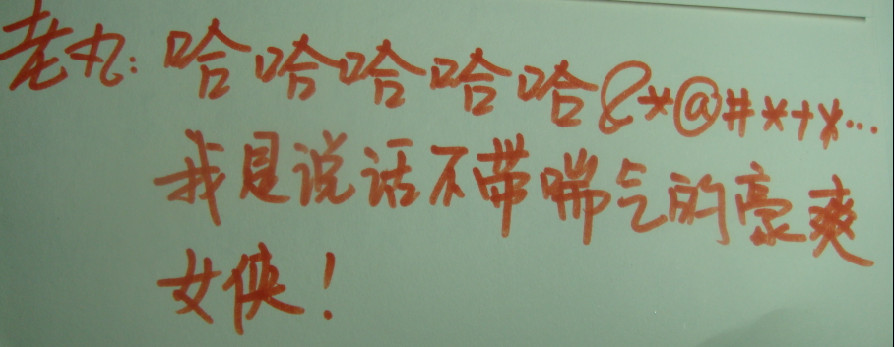 老丸:哈哈哈哈哈&*@#*+*…
我是说话不带喘气的豪爽
女侠!